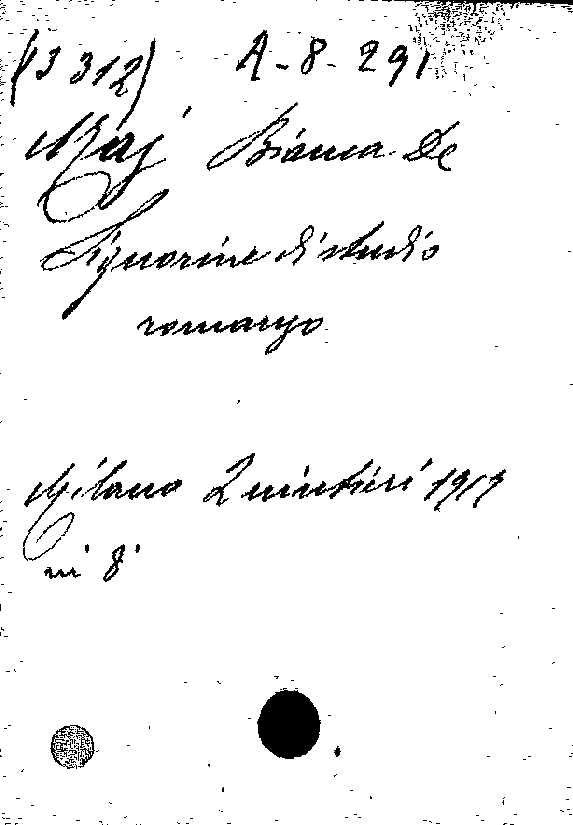 (13312) A-8-291
Maj Bianca De
Signorine di studio
romanzo
Milano Quintieri 1919
in 8°